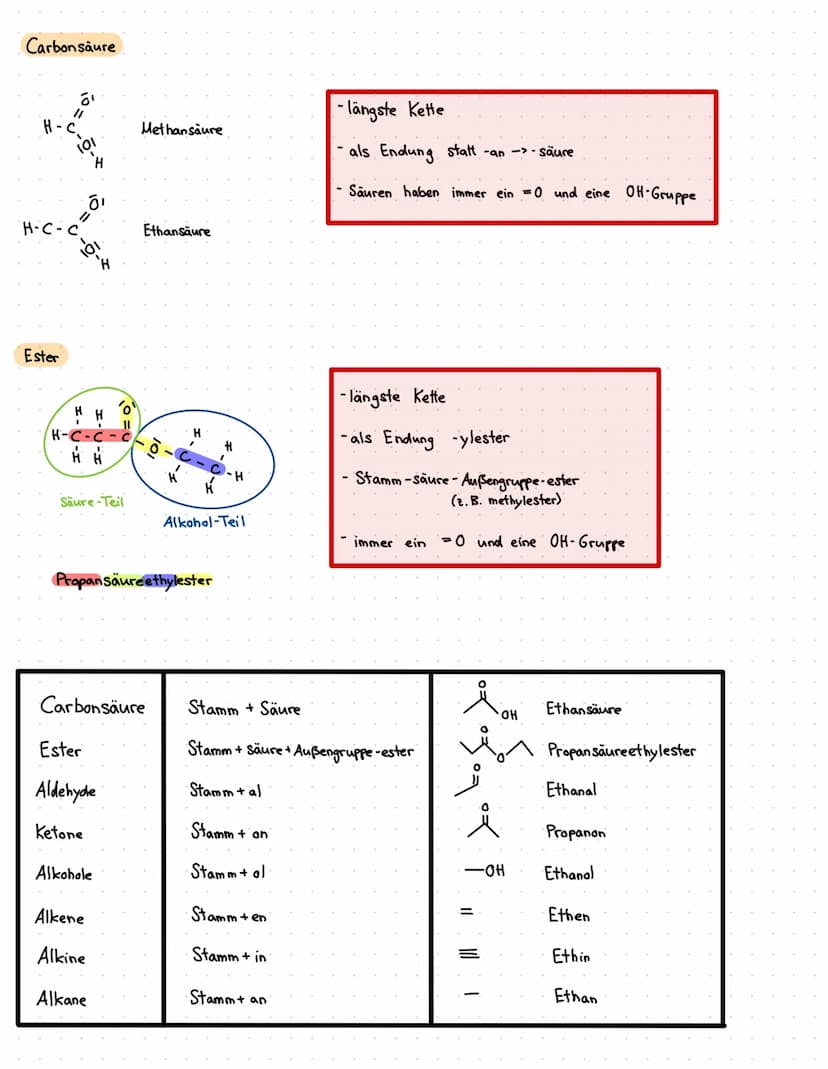 Carbonsäure
O
H - C
O
H
Methansäure
O
H-C-C
O
H
Ethansäure
- längste Kette
- als Endung statt -an -> - säure
- Säuren haben immer ein =O und eine OH-Gruppe
Ester
H H O
H-C-C-C-O-C-C-H
H H
H H
H H
Säure-Teil
Alkohol-Teil
Propansäureethylester
- längste Kette
- als Endung -ylester
- Stamm-säure-Außengruppe-ester
(z.B. methylester)
- immer ein =O und eine OH-Gruppe
Carbonsäure Stamm + Säure O OH Ethansäure
Ester Stamm + säure + Außengruppe-ester O O Propansäureethylester
Aldehyde Stamm + al O Ethanal
Ketone Stamm + on O Propanon
Alkohole Stamm + ol —OH Ethanol
Alkene Stamm + en = Ethen
Alkine Stamm + in ≡ Ethin
Alkane Stamm + an — Ethan